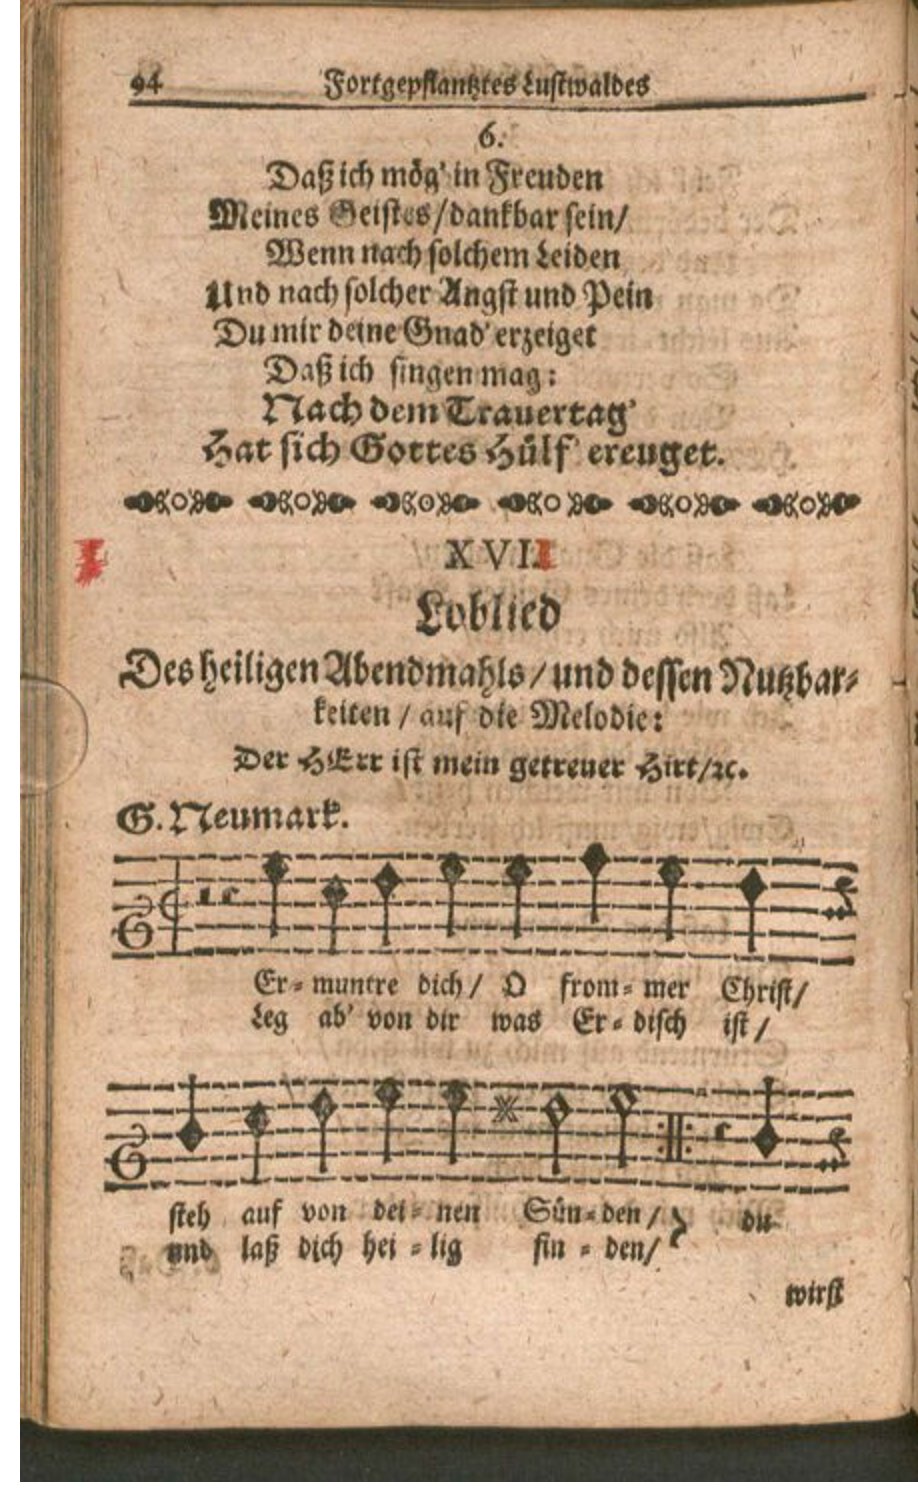 94 Fortgepflantztes Lustwaldes
6.
Daß ich mög' in Freuden
Meines Geistes/ dankbar sein/
Wenn nach solchem Leiden
Und nach solcher Angst und Pein
Du mir deine Gnad' erzeiget
Daß ich singen mag:
Nach dem Trauertag'
Hat sich Gottes Hülf' ereuget.
XVII
Loblied
Des heiligen Abendmahls/ und dessen Nutzbar-
keiten/ auf die Melodie:
Der HErr ist mein getreuer Hirt/ ꝛc.
G. Neumark.
Er-muntre dich/ O from-mer Christ/
Leg ab' von dir was Er-disch ist/
steh auf von dei-nen Sün-den/ du
und laß dich hei-lig fin-den/
wirst